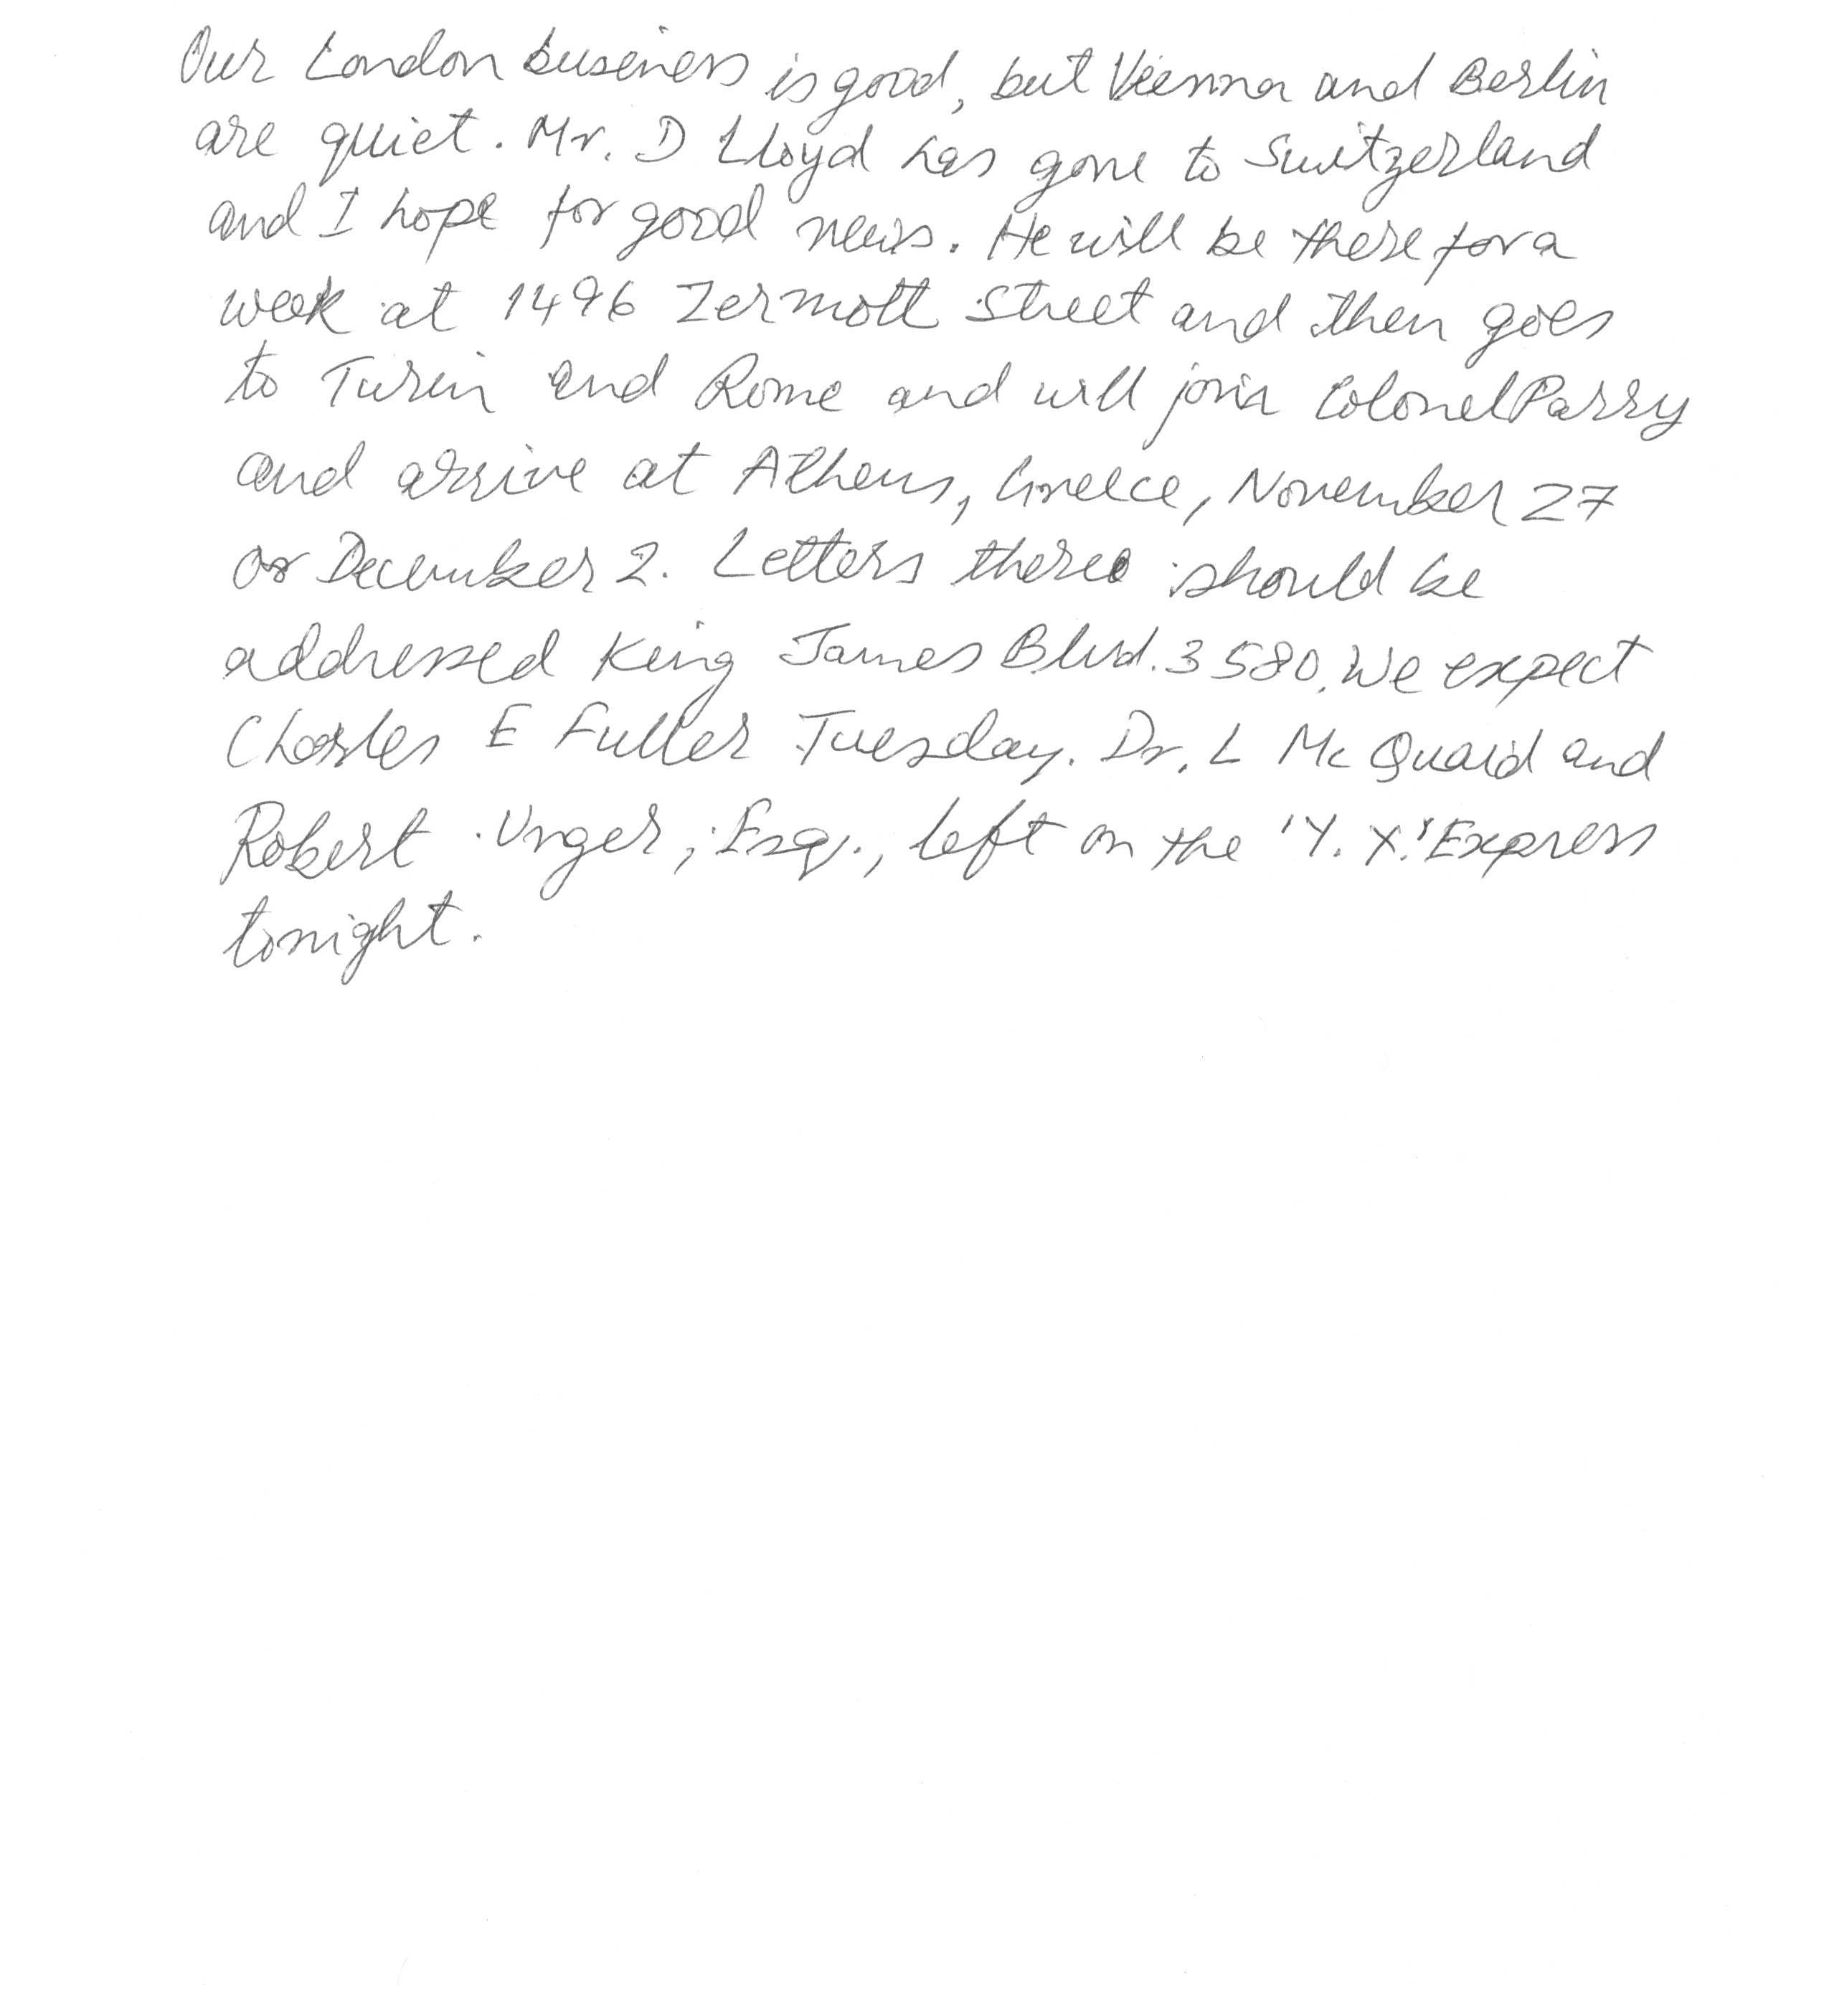 Our London business is good, but Vienna and Berlin
are quiet. Mr. D Lloyd has gone to Switzerland
and I hope for good news. He will be there for a
week at 1496 Zermott Street and then goes
to Turin and Rome and will join Colonel Parry
and arrive at Athens, Greece, November 27
or December 2. Letters there should be
addressed King James Blvd. 3580. We expect
Charles E Fuller Tuesday. Dr. L Mc Quaid and
Robert Unger, Esq., left on the 'Y. X.' Express
tonight.